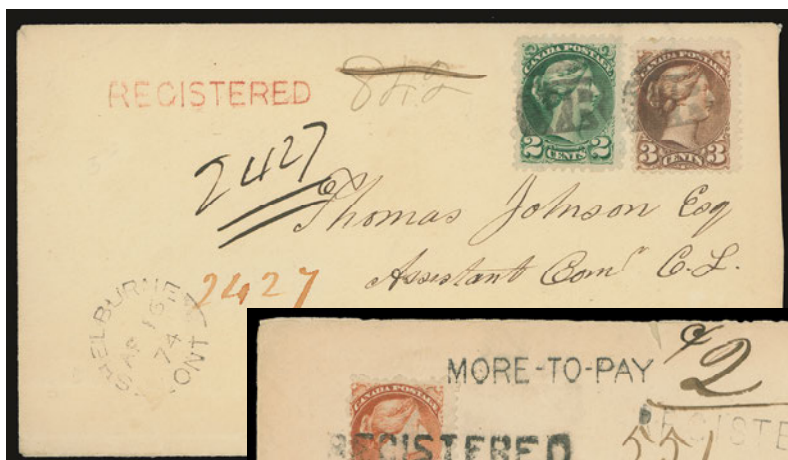 REGISTERED
842
CANADA POSTAGE
2 CENTS 2
CANADA POSTAGE
3 CENTS 3
2427
Thomas Johnson Esq
Assistant Comr C.L.
2427
SHELBURNE
AP 16
74
ONT
MORE-TO-PAY
2
CANADA POSTAGE
REGISTERED
REGISTE
551